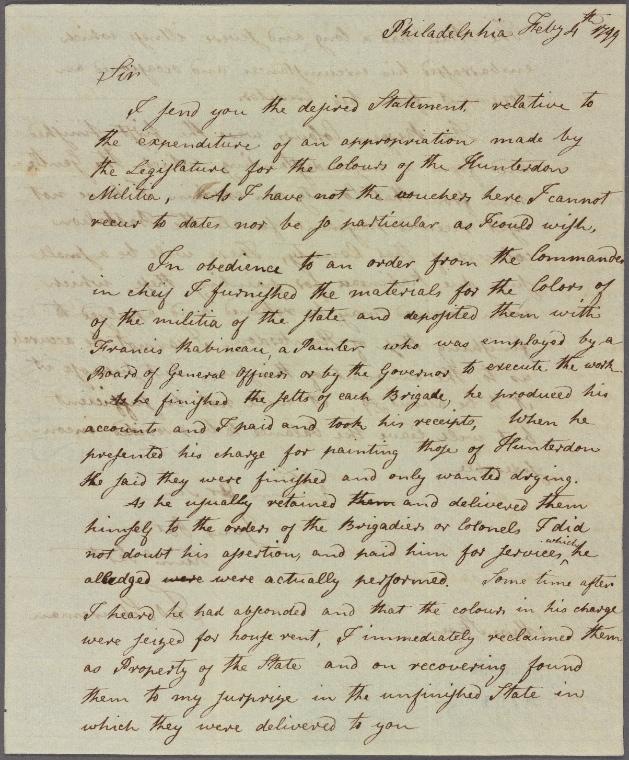 Philadelphia Feby 4th 1799
Sir
I send you the desired Statement, relative to
the expenditure of an appropriation made by
the Legislature for the Colours of the Hunterdon
Militia, As I have not the vouchers here I cannot
recur to dates nor be so particular as I could wish,
In obedience to an order from the Commander
in cheif I furnished the materials for the Colors of
of the militia of the state and deposited them with
Francis Rabineau, a Painter who was employed by a
Board of General Officers or by the Governor to execute the work
he finished the setts of each Brigade, he produced his
accounts and I paid and took his receipts, When he
presented his charge for painting those of Hunterdon
He said they were finished and only wanted drying.
As he usually retained them and delivered them
himself to the orders of the Brigadiers or Colonels I did
not doubt his assertion, and paid him for services, which he
alledged were were actually performed. Some time after
I heard he had absconded and that the colours in his charge
were seized for house rent, I immediately reclaimed them
as Property of the State and on recovering found
them to my surprize in the unfinished State in
which they were delivered to you